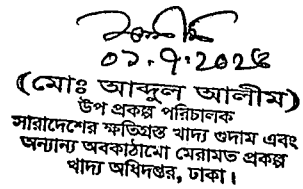 ০১.৭.২০২৫
(মোঃ আব্দুল আলীম)
উপ প্রকল্প পরিচালক
সারাদেশের ক্ষতিগ্রস্ত খাদ্য গুদাম এবং
অন্যান্য অবকাঠামো মেরামত প্রকল্প
খাদ্য অধিদপ্তর, ঢাকা।